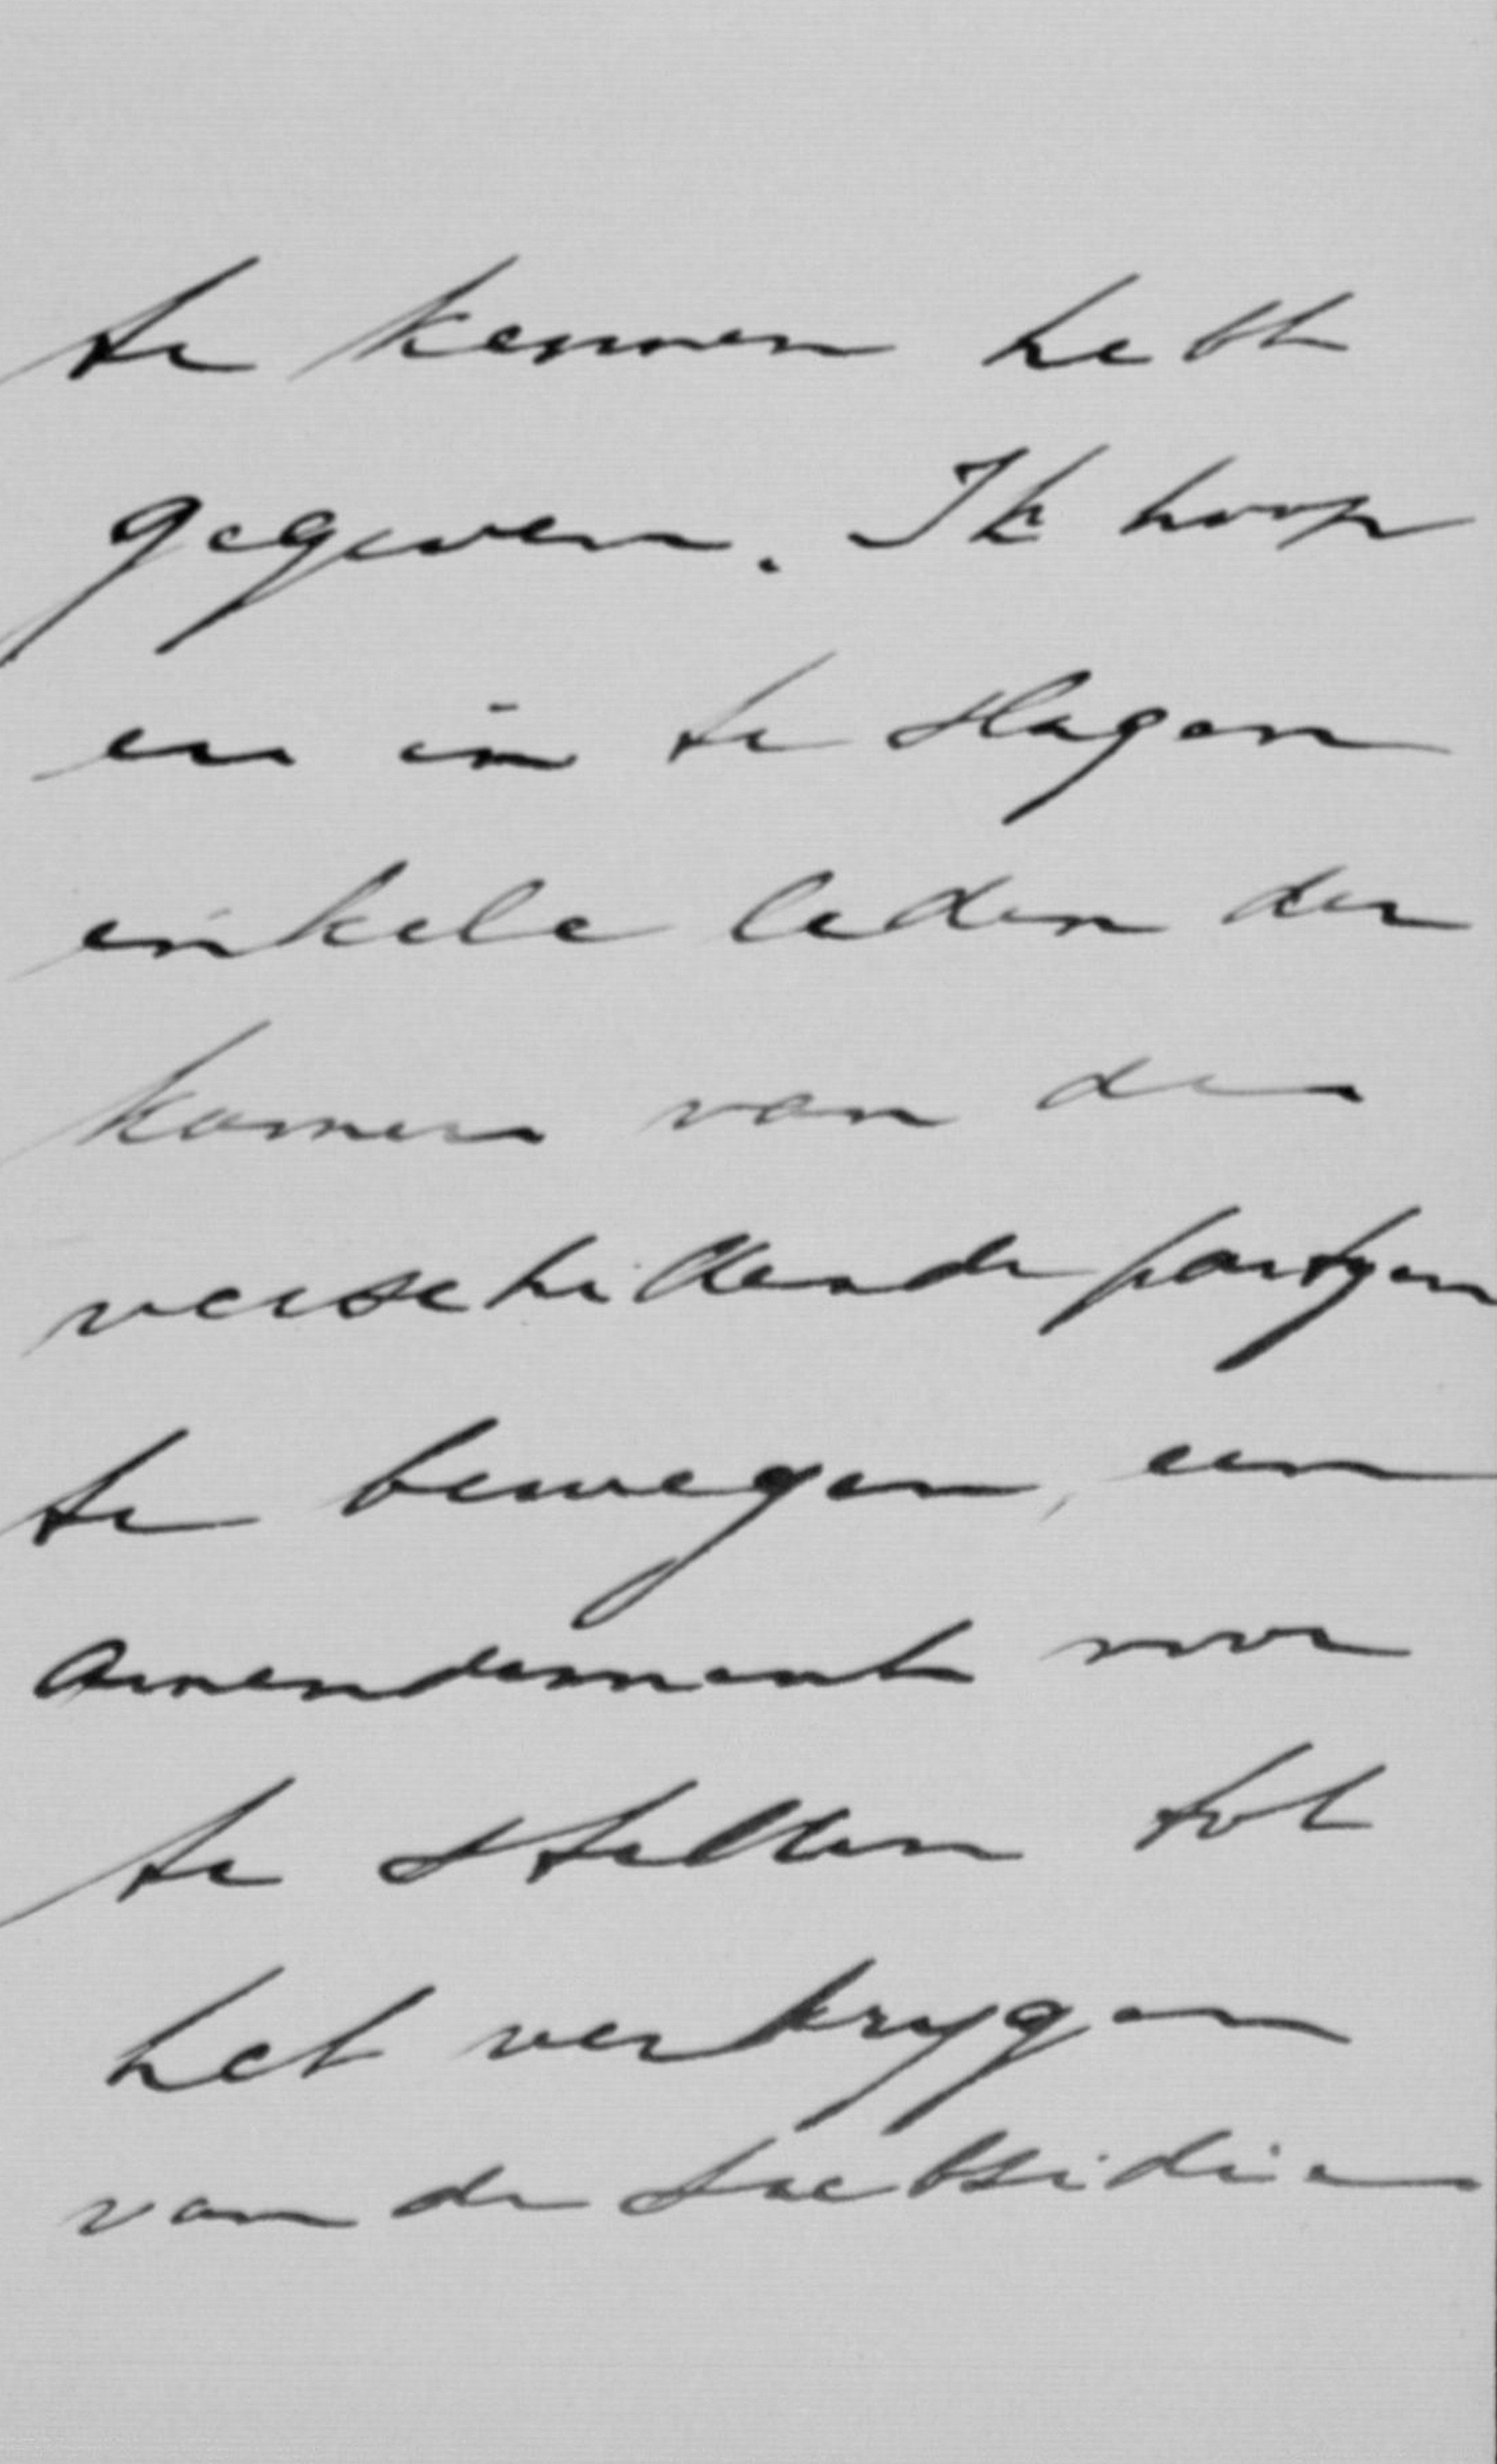 te kennen hebt
gegeven. Ik hoop
er in te slagen
enkele leden der
kamer van de
verschillende partyen
te bewegen, een
amendement voor
te stellen tot
het verkrygen
van de subsidie